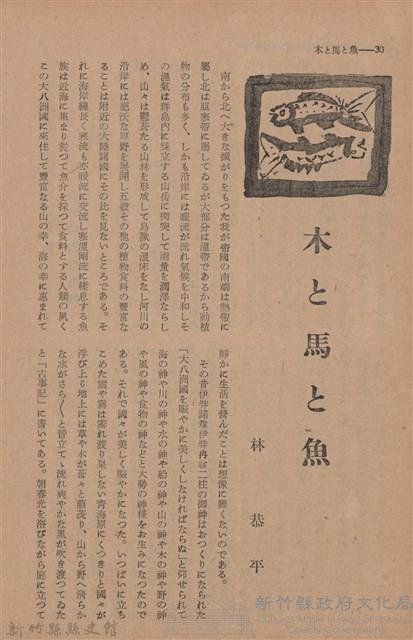 木と馬と魚——30
木と馬と魚
林恭平
南から北へ大きな擴がりをもつた我が帝國の南端は熱帶に
屬し北は亞寒帶に屬してゐるが大部分は溫帶であるから動植
物の分布も多く、しかも沿岸には暖流が流れ氣候を中和しそ
の濕氣は群島内に聳立する山岳に衝突して雨量を潤澤ならし
め、山々は鬱蒼たる山林を形成して鳥獸の溫床をなし河川の
沿岸には肥沃な原野を展開し五穀その他の植物食料の豐富な
ることは附近の大陸諸國にその比を見ないところである。そ
れに海岸線長く寒流も亦暖流に交流し寒溫兩流に棲息する魚
族は近海に集まり從つて魚介を採つて食料とする人類の夙く
この大八洲國に來住して豐富なる山の幸、海の幸に惠まれて
靜かに生活を營んだことは想像に難くないのである。
その昔伊弉諾尊伊弉冉尊二柱の御神はおつくりになられた
「大八洲國を賑やかに美しくしなければならぬ」と仰せられて
海の神や川の神や水の神や船の神や山の神や木の神や野の神
や風の神や食物の神などと大勢の神樣をお生みになつたので
ある。それで國々が美しく賑やかになつた。いつぱいに立ち
こめた雲や霧は霽れ渡り果しない靑海原にくつきりと國々が
浮び上り地上には草や木が蒼々と茂り、山から野へ淸らか
な水がさら〳〵と音立てゝ流れ爽やかな風が吹き渡つてゐた
と「古事記」に書いてある。朝春光を浴びながら庭に立つて
新竹縣政府文化局
Cultural Affairs Bureau of
新竹縣縣史館